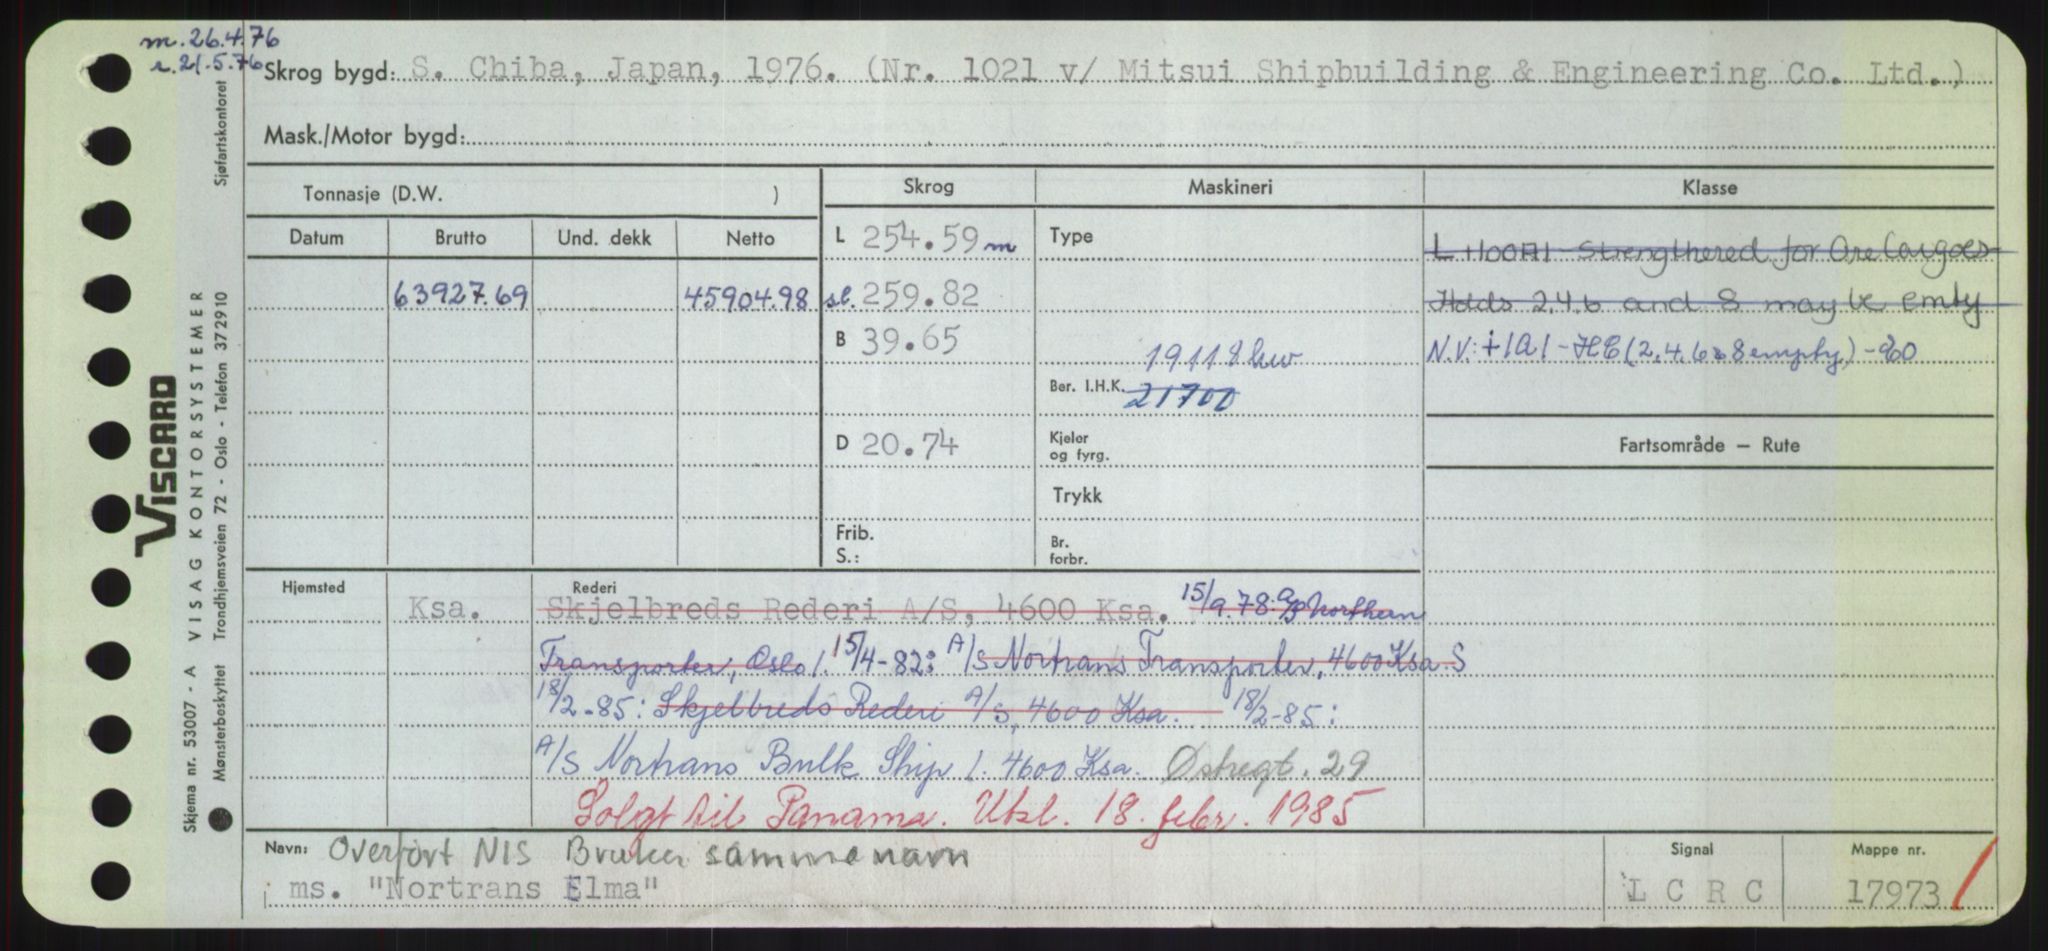 m. 26.4.76
r. 21.5.76
Skrog bygd: S. Chiba, Japan, 1976. (Nr. 1021 v/ Mitsui Shipbuilding & Engineering Co. Ltd.)
Mask./Motor bygd:
Tonnasje (D.W. )
Skrog
Maskineri
Klasse
Datum
Brutto
Und. dekk
Netto
L 254.59 m
Type
L +100A1 Strengthered for Ore Cargoes
63927.69
45904.98
sl. 259.82
Holds 2.4.6 and 8 may be emty
B 39.65
19118 kw
N.V: +1A1-HC (2.4.6 & 8 empty) -E0
Ber. I.H.K. 21700
D 20.74
Kjeler og fyrg.
Fartsområde — Rute
Trykk
Frib. S.:
Br. forbr.
Hjemsted
Rederi
Ksa.
Skjelbreds Rederi A/S, 4600 Ksa. 15/9.78: A/S Northern
Transporter, Oslo 1. 15/4-82: A/S Nortrans Transporter, 4600 Ksa. S
18/2-85: Skjelbreds Rederi A/S, 4600 Ksa. 18/2-85:
A/S Nortrans Bulk Ship 1. 4600 Ksa. Østregt. 29
Solgt til Panama. Utsl. 18. febr. 1985
Navn: Overført NIS Bruker samme navn
Signal
Mappe nr.
ms. "Nortrans Elma"
L C R C
17973 /
VISCARD
Skjema nr. 53007 - A VISAG KONTORSYSTEMER
Mønsterbeskyttet Trondhjemsveien 72 - Oslo - Telefon 372910 Sjøfartskontoret